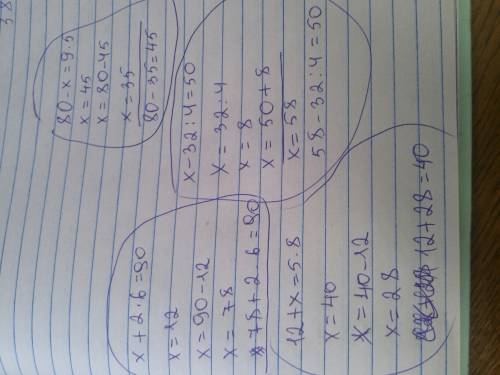 38
80-x=9·5
x=45
x=80-45
x=35
80-35=45
x-32:4=50
x=32:4
x=8
x=50+8
x=58
58-32:4=50
x+2·6=90
x=12
x=90-12
x=78
78+2·6=90
12+x=5·8
x=40
x=40-12
x=28
12+28=40